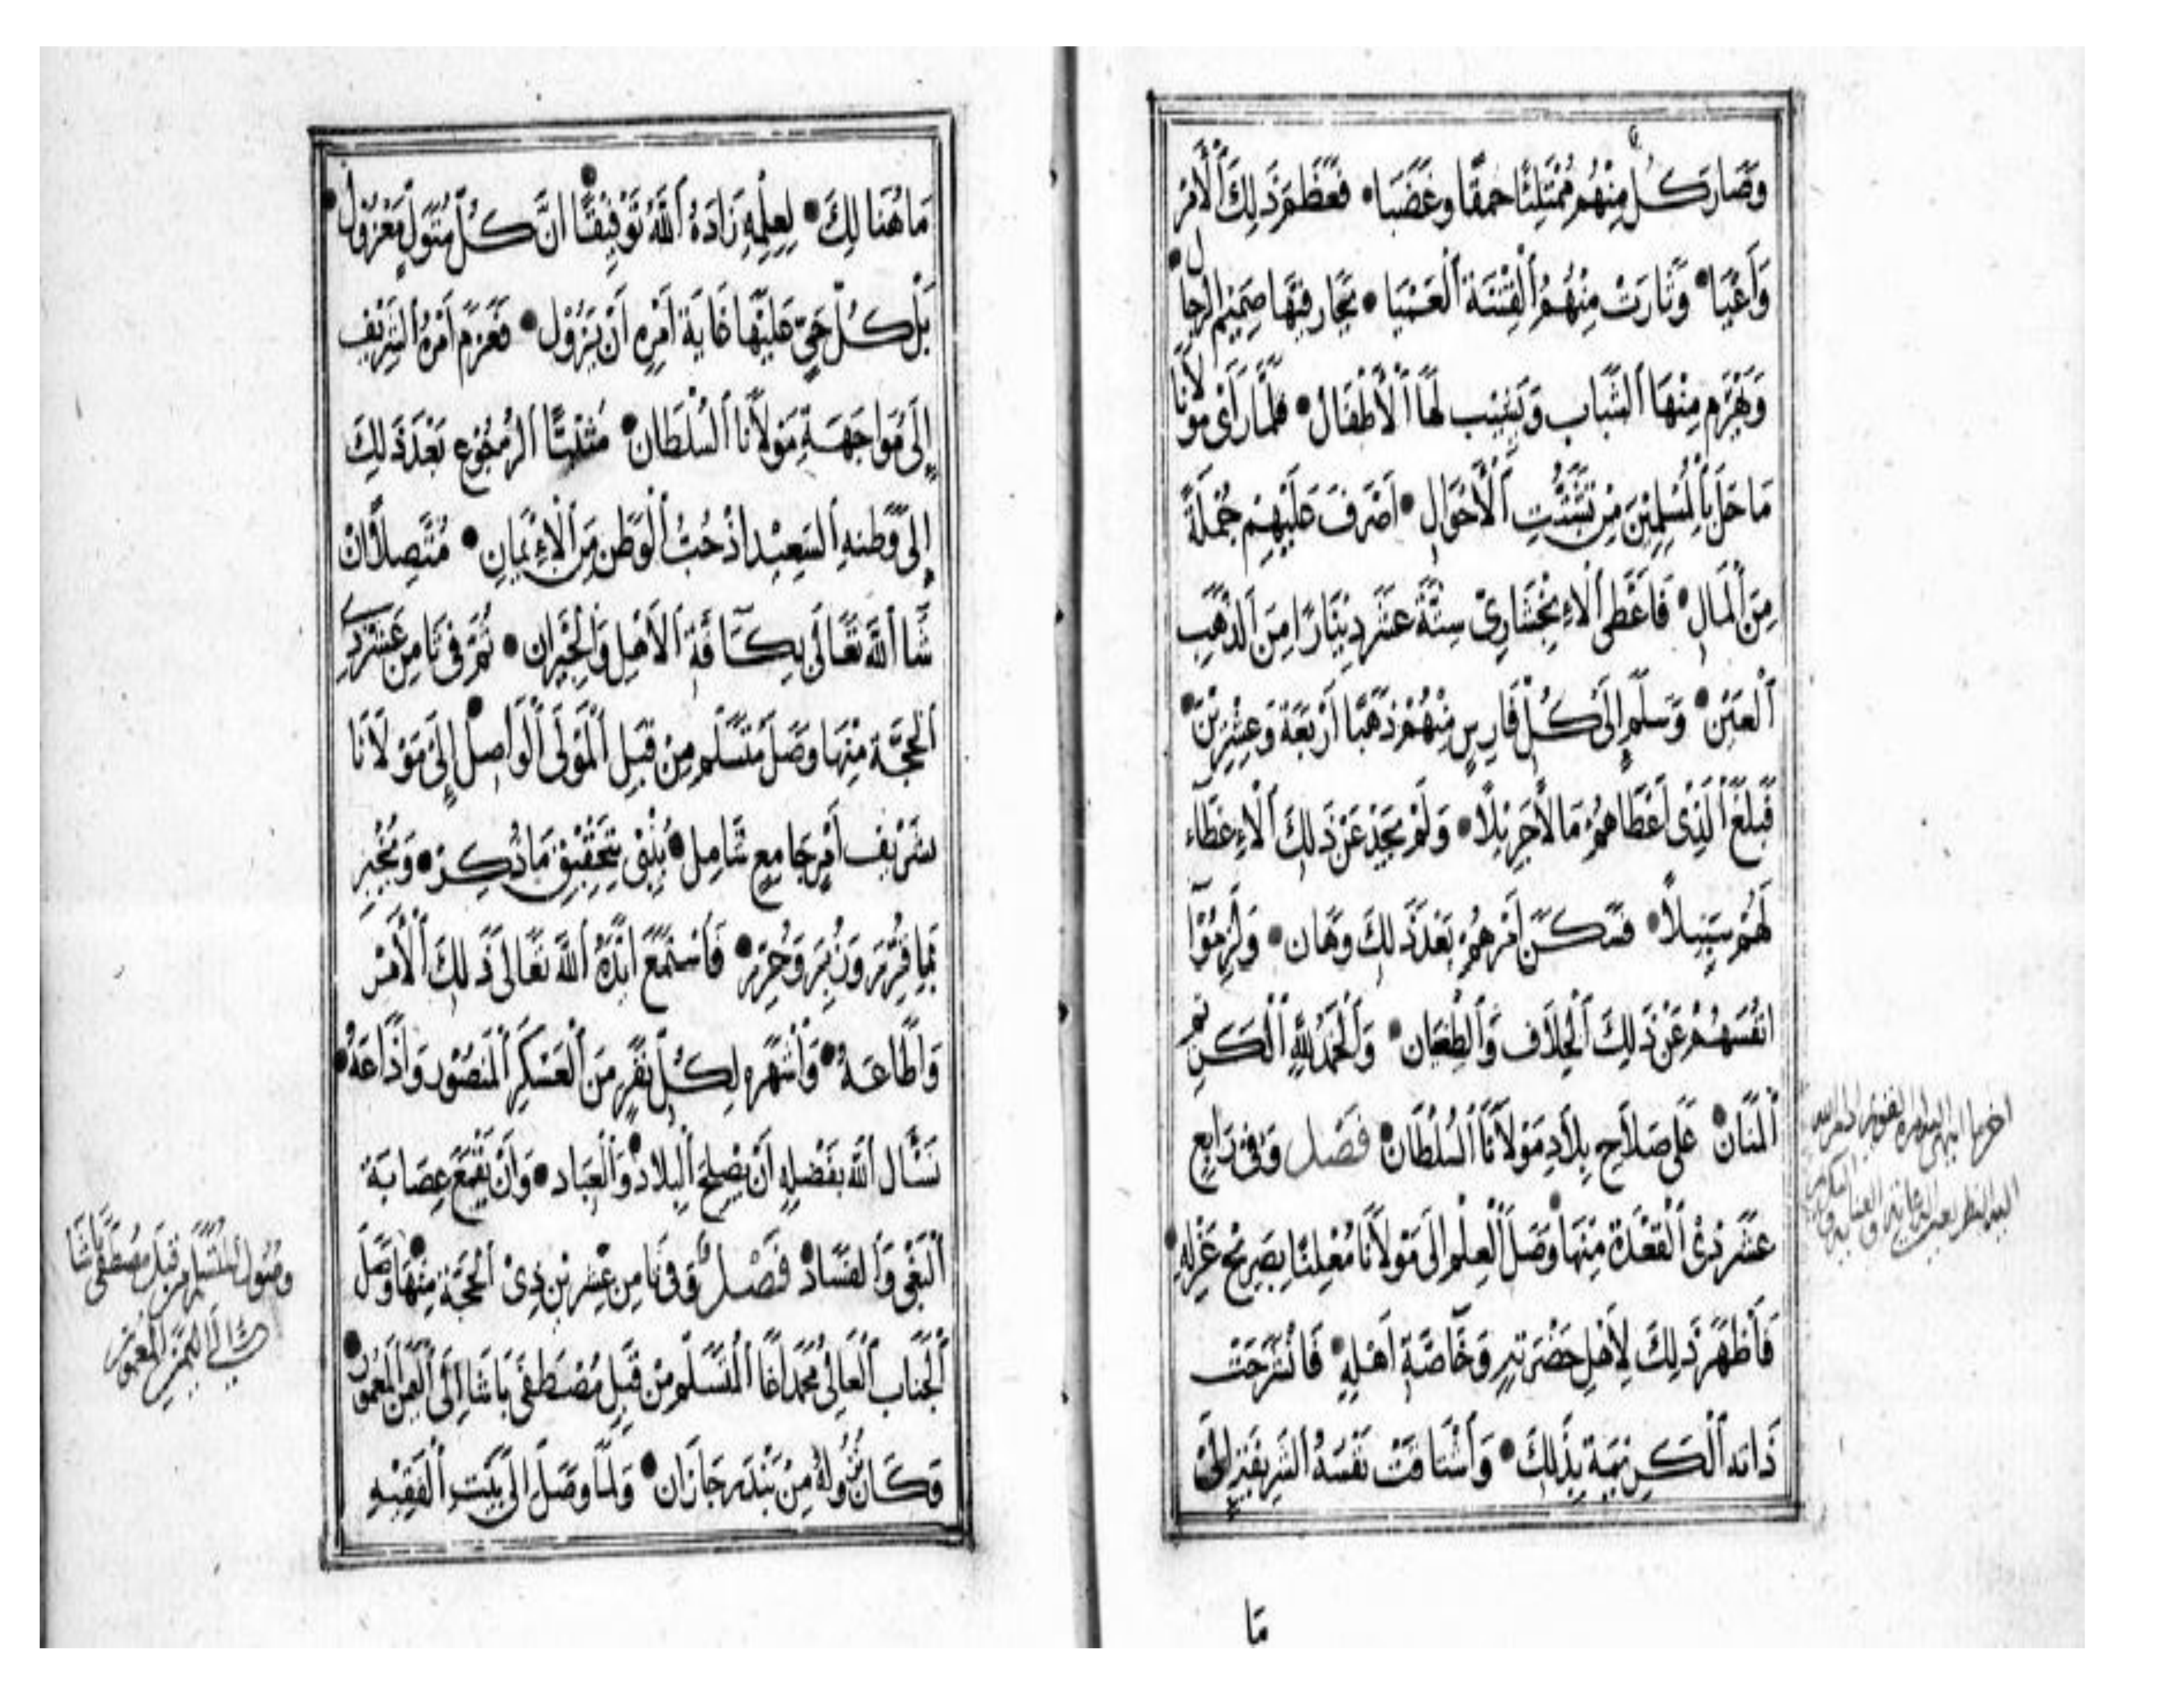 وَصَارَ كُلٌّ مِنْهُمْ مُمْتَلِئًا حَمَقًا وَغَضَبَا • فَعَظُمَ ذَلِكَ الْأَمْرُ
وَأَعْيَا • وَثَارَتْ مِنْهُمُ الْفِتْنَةُ الْعَمْيَا • يَحَارُ فِيْهَا صَمِيْمُ الرِّجَال •
وَيَهْرَمُ مِنْهَا الشَّبَاب وَيَشِيْبُ لَهَا الْأَطْفَال • فَلَمَّا رَأَى مَوْلَانَا
مَا حَلَّ بِالْمُسْلِمِيْنَ مِنْ تَشَتُّتِ الْأَحْوَال • أَصْرَفَ عَلَيْهِمْ جُمْلَةً
مِنَ الْمَالِ • فَأَعْطَى الْإِنْجِشَارِيْ سِتَّةَ عَشَرَ دِيْنَارًا مِنَ الذَّهَبِ
الْعَيْنِ • وَسَلَّمَ إِلَى كُلِّ فَارِسٍ مِنْهُمْ ذَهَبًا أَرْبَعَةً وَعِشْرِيْنَ •
فَبَلَغَ الَّذِى أَعْطَاهُمْ مَالًا جَزِيْلًا • وَلَمْ يَجِدْ عَنْ ذَلِكَ الْإِعْطَاءِ
لَهُمْ سَبِيْلًا • فَسَكَنَ أَمْرُهُمْ بَعْدَ ذَلِكَ وَهَان • وَلَزِمُوْا
أَنْفُسَهُمْ عَنْ ذَلِكَ الْخِلَافِ وَالطِّعَان • وَالْحَمْدُ لِلَّهِ الْكَرِيْمِ
الْمَنَّان • عَلَى صَلَاحِ بِلَادِ مَوْلَانَا السُّلْطَان • فَصْل وَفِى رَابِع
عَشَرَ ذِىْ الْقَعْدَةِ مِنْهَا وَصَلَ الْعِلْمُ إِلَى مَوْلَانَا مُعْلِنًا بِصَرِيْحِ عَزْلِهِ •
فَأَظْهَرَ ذَلِكَ لِأَهْلِ حَضْرَتِهِ وَخَاصَّةِ أَهْلِهِ • فَانْشَرَحَتْ
ذَاتُهُ الْكَرِيْمَةُ بِذَلِكَ • وَاشْتَاقَتْ نَفْسُهُ الشَّرِيْفَةُ إِلَىْ
مَا
مَا هُنَالِكَ • لِعِلْمِهِ زَادَهُ اللَّهُ تَوْفِيْقًا أَنَّ كُلَّ مُتَوَلٍّ مَعْزُوْل •
بَلْ كُلُّ حَيٍّ عَلَيْهَا غَايَةُ أَمْرِهِ أَنْ يَزُوْل • فَعَزَمَ أَمْرُهُ الشَّرِيْف
إِلَى مُوَاجَهَةِ مَوْلَانَا السُّلْطَان • الرُّجُوْعِ بَعْدَ ذَلِكَ
إِلَى وَطَنِهِ السَّعِيْد إِذْ حُبُّ الْوَطَنِ مِنَ الْإِيْمَانِ • مُتَّصِلًا إِنْ
شَا اللَّهُ تَعَالَى بِكَافَّةِ الْأَهْلِ وَالْجِيْرَان • ثُمَّ فِى ثَامِنِ عَشَرَ ذِى
الْحِجَّةِ مِنْهَا وَصَلَ مُتَسَلِّم مِنْ قِبَلِ الْمُوَلَّى الْوَاصِلُ إِلَى مَوْلَانَا
بِشَرِيْفِ أَمْرٍ جَامِعٍ شَامِل • يُنْبِى بِتَحْقِيْقِ مَا ذُكِرَ • وَيُخْبِرُ
بِمَا قُرِّرَ وَزُبِرَ وَحُرِّرَ • فَاسْتَمَعَ أَيَّدَهُ اللَّهُ تَعَالَى ذَلِكَ الْأَمْرَ
وَأَطَاعَهُ • وَأَشْهَرَهُ لِكُلِّ نَفَرٍ مِنَ الْعَسْكَرِ الْمَنْصُوْرِ وَأَذَاعَهُ •
نَسْأَلُ اللَّهَ بِفَضْلِهِ أَنْ يُصْلِحَ الْبِلَادَ وَالْعِبَاد • وَأَنْ يَقْمَعَ عِصَابَةَ
الْبَغْى وَالْفَسَاد • فَصْل وَفِى ثَامِنِ عِشْرِيْنَ ذِىْ الْحِجَّةِ مِنْهَا وَصَلَ
الْجَنَابُ الْعَالِى مُحَمَّد آغَا الْمُتَسَلِّم مِنْ قِبَلِ مُصْطَفَى بَاشَا إِلَى الْيَمَنِ الْمَعْمُوْر •
وَكَانَ نُزُوْلُهُ مِنْ بَنْدَر جَازَان • وَلَمَّا وَصَلَ إِلَى بَيْتِ الْفَقِيْهِ
وصول المتسلم من قبل مصطفى باشا
إلى اليمن المعمور